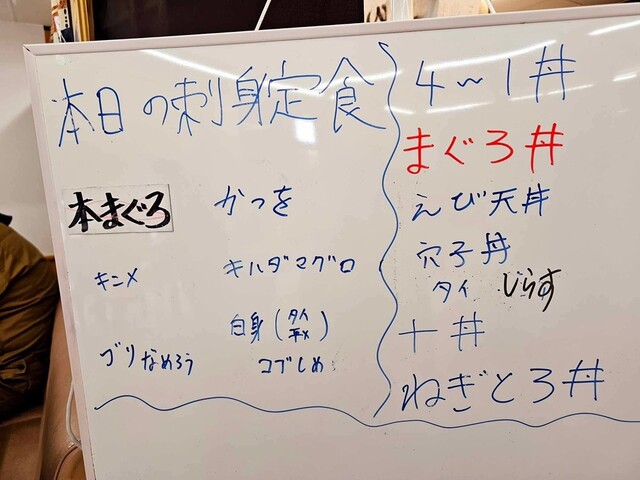 本日の刺身定食
本まぐろ かつを
キンメ キハダマグロ
白身(タイ 平メ)
ブリなめろう コブしめ
4~1丼
まぐろ丼
えび天丼
穴子丼
タイ しらす
十丼
ねぎとろ丼